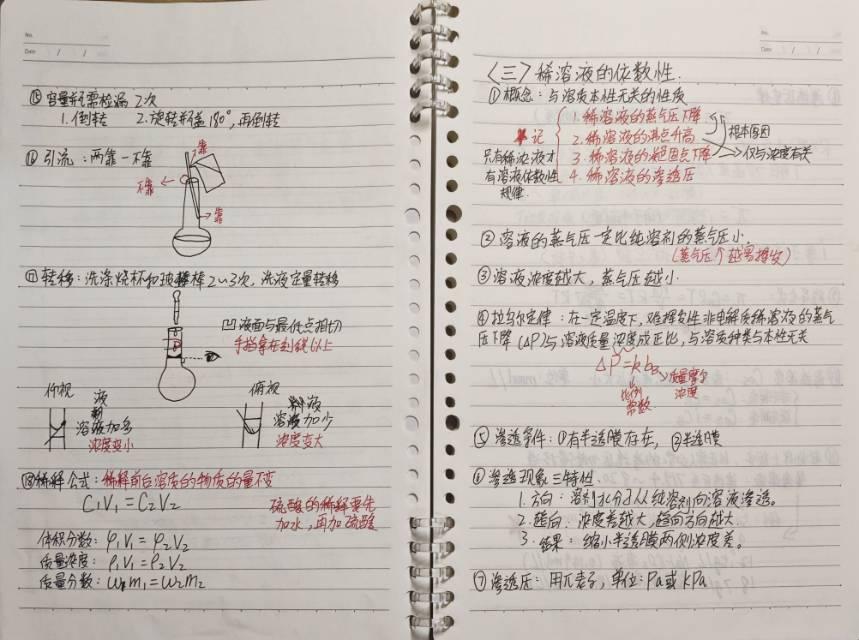 No.
Date / /
⑮ 容量瓶需检漏 2次
1.倒转 2.旋转瓶塞180°,再倒转
⑯ 引流：两靠一不靠
靠
不靠
靠
⑰ 转移：洗涤烧杯和玻璃棒2~3次,洗液定量转移
凹液面与最低点相切
手挡拿在刻线以上
仰视
液
溶液加多
浓度变小
俯视
液
溶液加少
浓度变大
⑱ 稀释公式：稀释前后溶质的物质的量不变
C₁V₁=C₂V₂
硫酸的稀释要先
加水,再加硫酸
体积分数：φ₁V₁=φ₂V₂
质量浓度：ρ₁V₁=ρ₂V₂
质量分数：ω₁m₁=ω₂m₂
No.
Date / /
〈三〉稀溶液的依数性.
①概念：与溶质本性无关的性质
1.稀溶液的蒸气压下降
2.稀溶液的沸点升高
3.稀溶液的凝固点下降
4.稀溶液的渗透压
记
根本原因
仅与浓度有关
只有稀浓液才
有溶液依数性
规律.
②溶液的蒸气压一定比纯溶剂的蒸气压小.
(蒸气压↑越易挥发)
③溶液浓度越大,蒸气压越小.
④拉乌尔定律：在一定温度下,难挥发性非电解质稀溶液的蒸气
压下降(ΔP)与溶液质量浓度成正比,与溶质种类与本性无关
ΔP=kb_B
质量摩尔
浓度
比例
常数.
⑤渗透条件：①有半透膜存在, ②半透膜
⑥渗透现象三特性.
1.方向：溶剂水分子从纯溶剂向溶液渗透。
2.趋向：浓度差越大,趋向方向越大.
3.结果：缩小半透膜两侧浓度差。
⑦渗透压：用π表示,单位:Pa或kPa